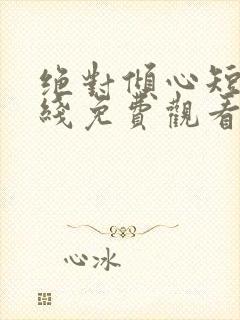 绝對傾心短
綫免費觀看
心冰